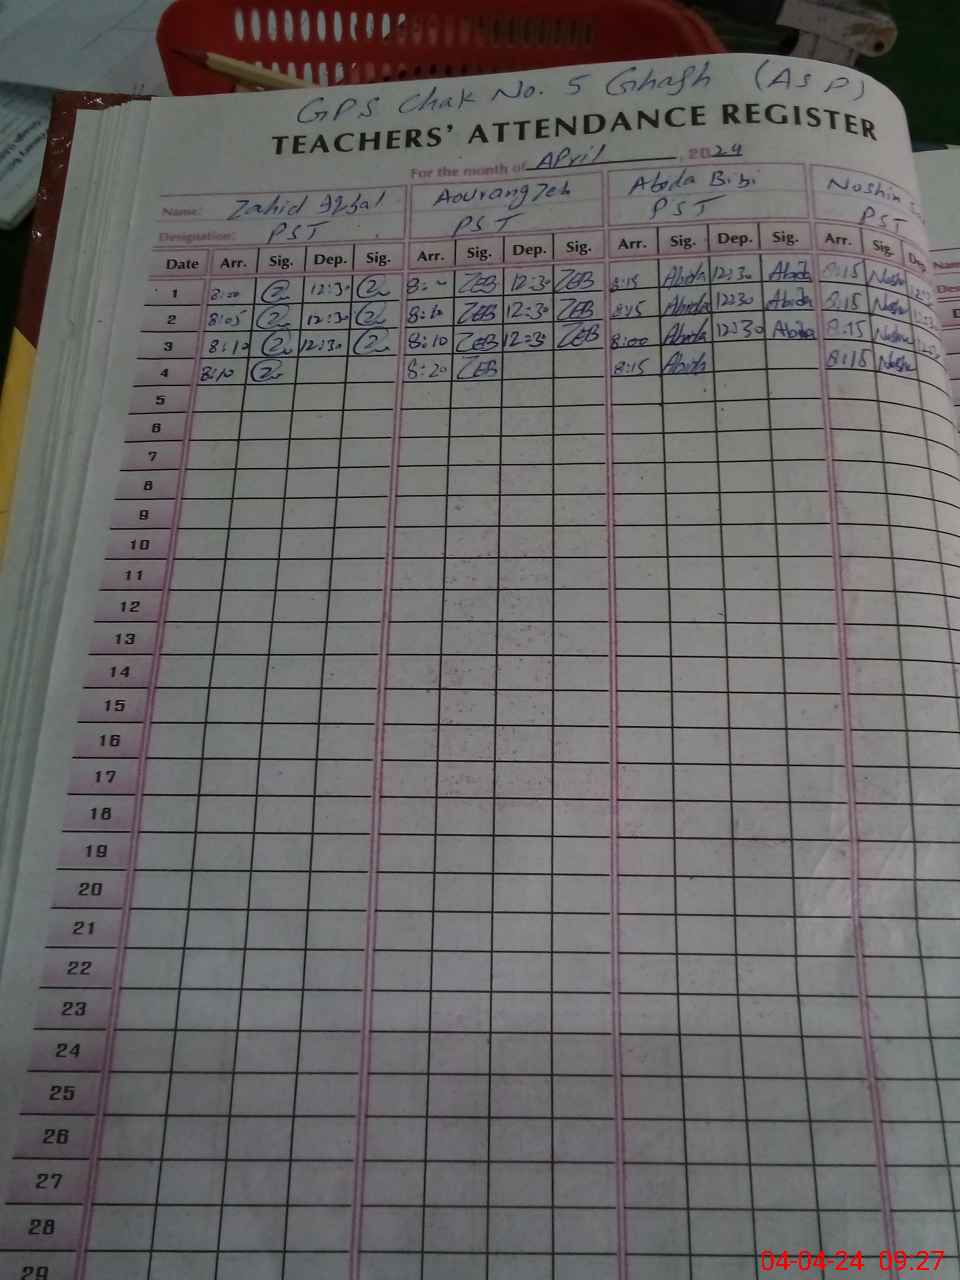 GPS Chak No. 5 Ghagh (ASP)
TEACHERS' ATTENDANCE REGISTER
For the month of April, 2024
Name: Zahid Iqbal Aourangzeb Abida Bibi Noshin
Designation: PST PST PST PST
Date Arr. Sig. Dep. Sig. Arr. Sig. Dep. Sig. Arr. Sig. Dep. Sig. Arr. Sig. Dep
1 8:00 12:30 8:00 ZEB 12:30 ZEB 8:15 Abida 12:30 Abida 8:15
2 8:05 12:30 8:10 ZEB 12:30 ZEB 8:15 Abida 12:30 Abida 8:15
3 8:10 12:30 8:10 ZEB 12:30 ZEB 8:00 Abida 12:30 Abida 8:15
4 8:10 8:20 ZEB 8:15 Abida 8:15
5
6
7
8
9
10
11
12
13
14
15
16
17
18
19
20
21
22
23
24
25
26
27
28
29
04-04-24 09:27